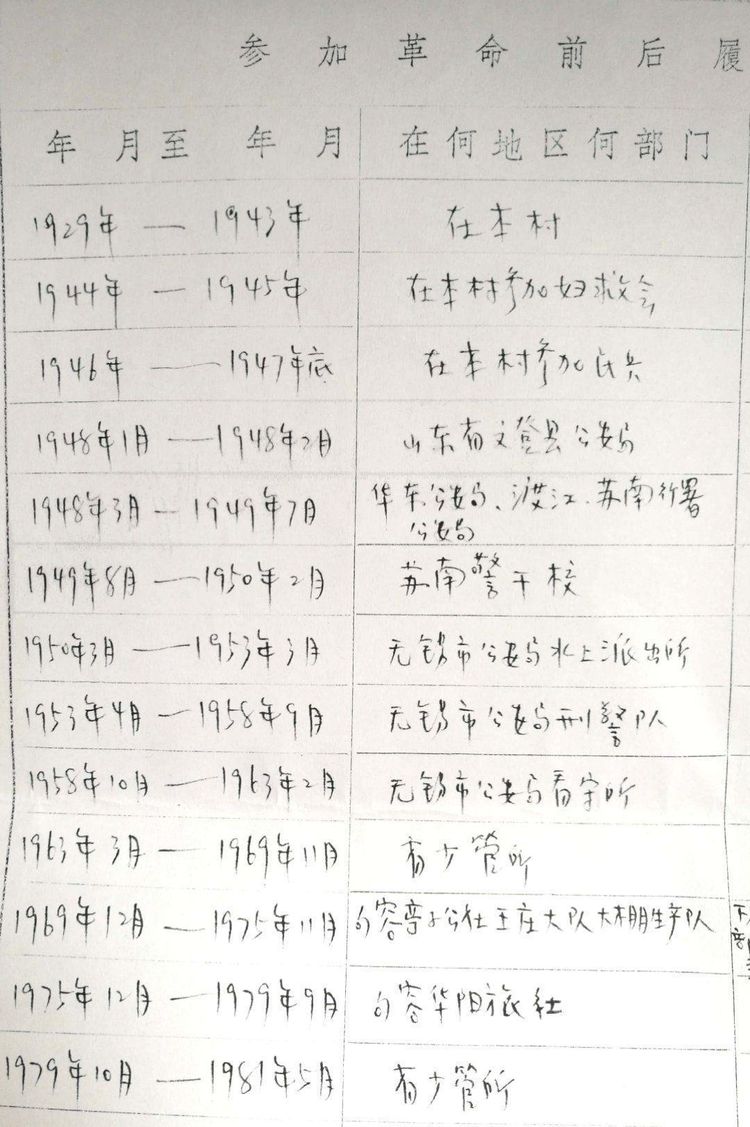 参加革命前后履
年 月至 年 月 在何地区何部门
1929年 — 1943年 在本村
1944年 — 1945年 在本村参加妇救会
1946年 — 1947年底 在本村参加民兵
1948年1月 — 1948年2月 山东省文登县公安局
1948年3月 — 1949年7月 华东公安局、渡江、苏南行署
公安局
1949年8月 — 1950年2月 苏南警干校
1950年3月 — 1953年3月 无锡市公安局水上派出所
1953年4月 — 1958年9月 无锡市公安局刑警队
1958年10月 — 1963年2月 无锡市公安局看守所
1963年3月 — 1969年11月 省少管所
1969年12月 — 1975年11月 句容亭子公社王庄大队大棚生产队
1975年12月 — 1979年9月 句容华阳旅社
1979年10月 — 1981年5月 省少管所